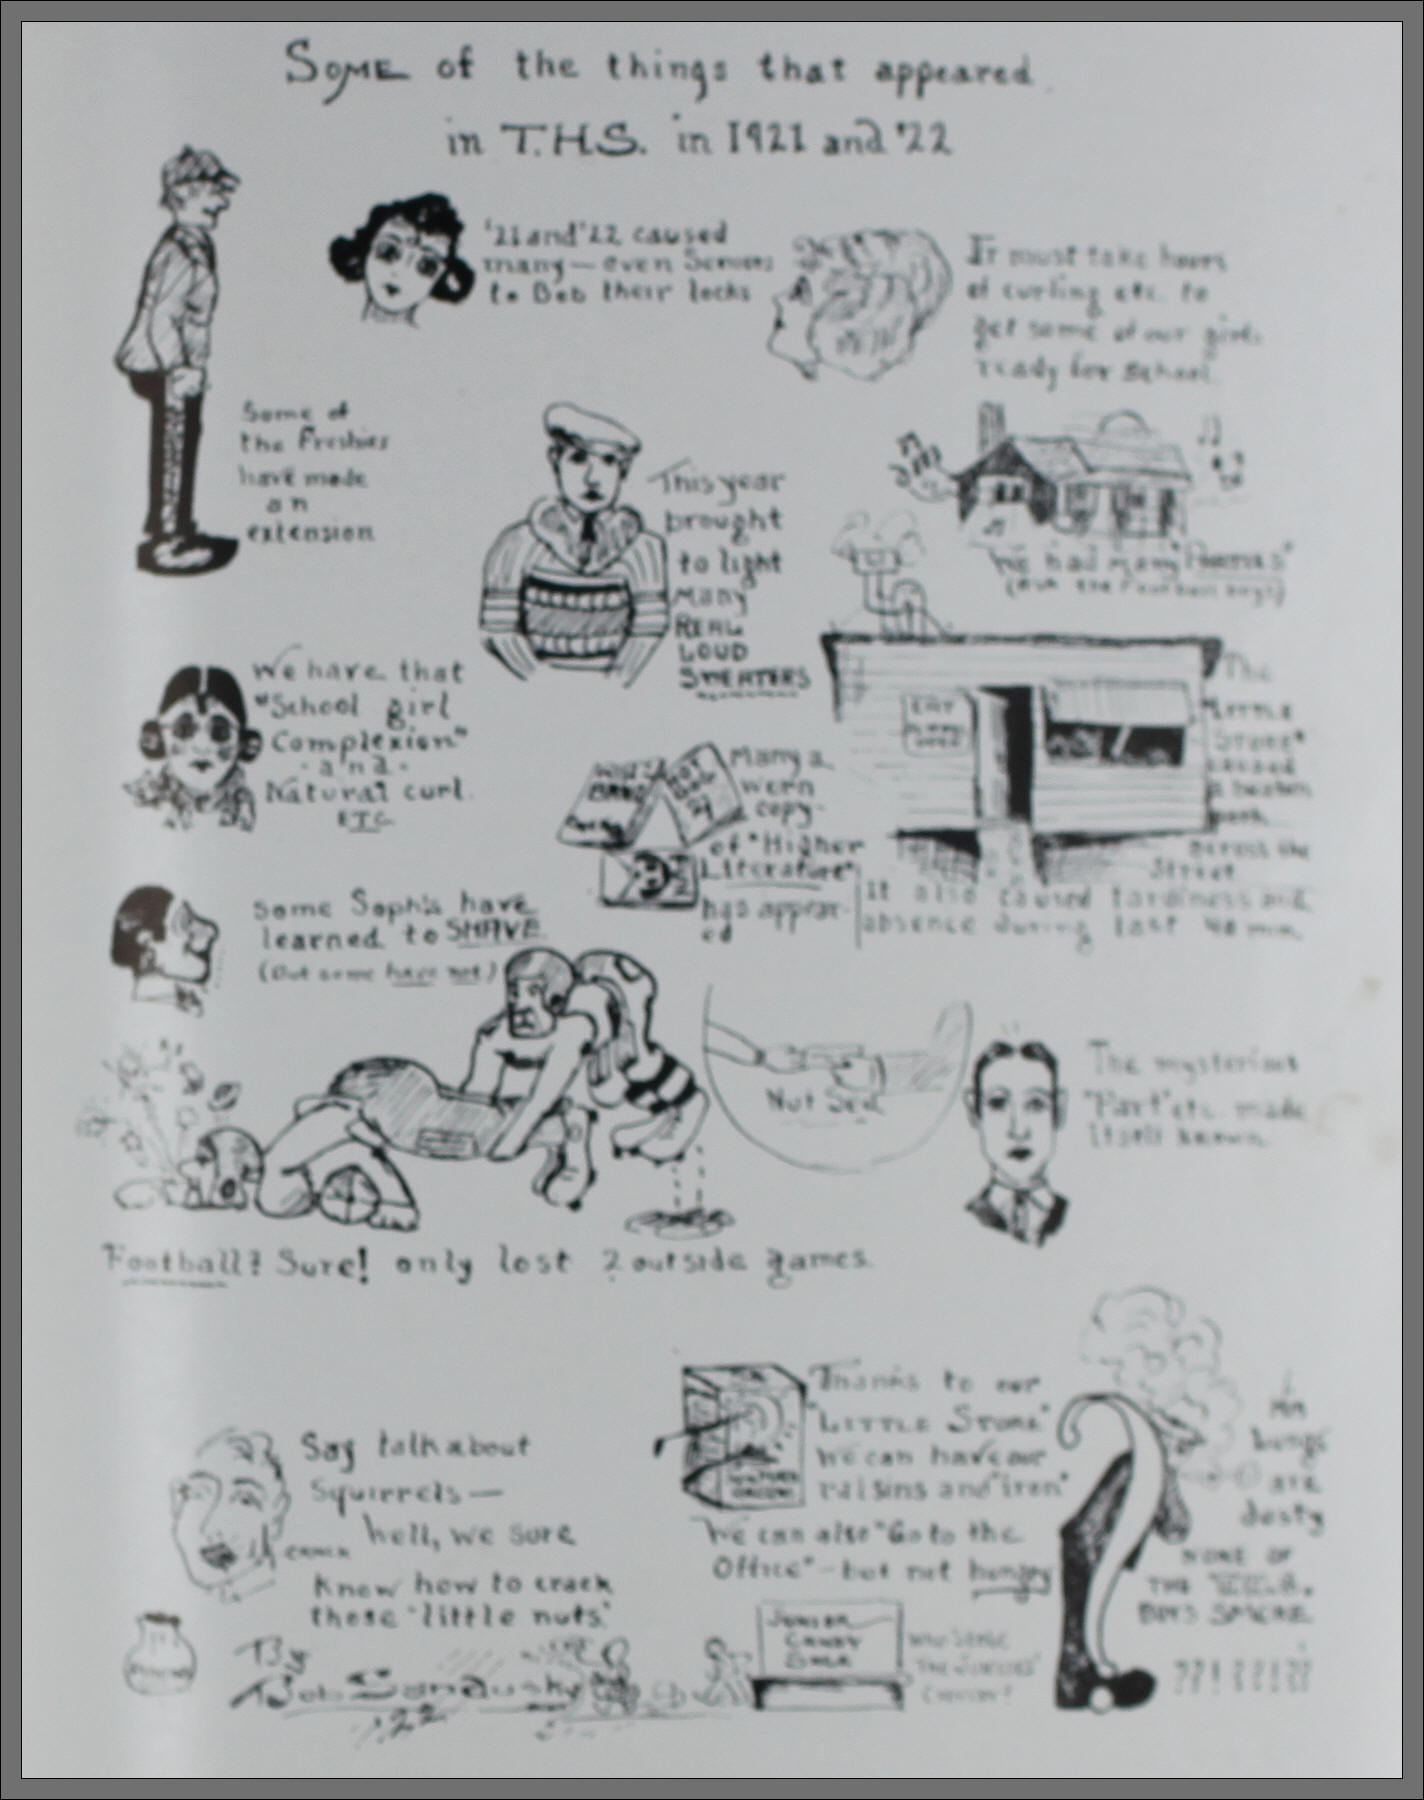 SOME of the things that appeared
in T.H.S. in 1921 and '22
'21 and '22 caused
many — even Seniors
to Bob their locks
It must take hours
of curling etc. to
get some of our girls
ready for school.
Some of
the Freshies
have made
an
extension
This year
brought
to light
Many
REAL
LOUD
SWEATERS
We had many "Parties"
We have that
"School girl
Complexion"
- and -
Natural curl.
ETC
The
"LITTLE
STORE"
caused
a beaten
path
across the
Street
It also caused tardiness and
absence during last 40 min.
EAT
HOT
DOG
Many a
worn
copy
of "Higher
Literature"
has appear-
ed
Some Soph's have
learned to SHAVE
(But some have not)
Nut Sed
The mysterious
"Part" etc. made
itself known.
Football? Sure! only lost 2 outside games.
Say talk about
Squirrels —
hell, we sure
know how to crack
those 'little nuts.'
CRACK
Thanks to our
"LITTLE STORE"
we can have our
raisins and "iron"
We can also "Go to the
Office" - but not hungry
My
lungs
are
dusty
NONE OF
THE
BOYS SMOKE
????????
JUNIOR
CANDY
SALE
Who stole
the Juniors'
By
Bob Sandusky
'22